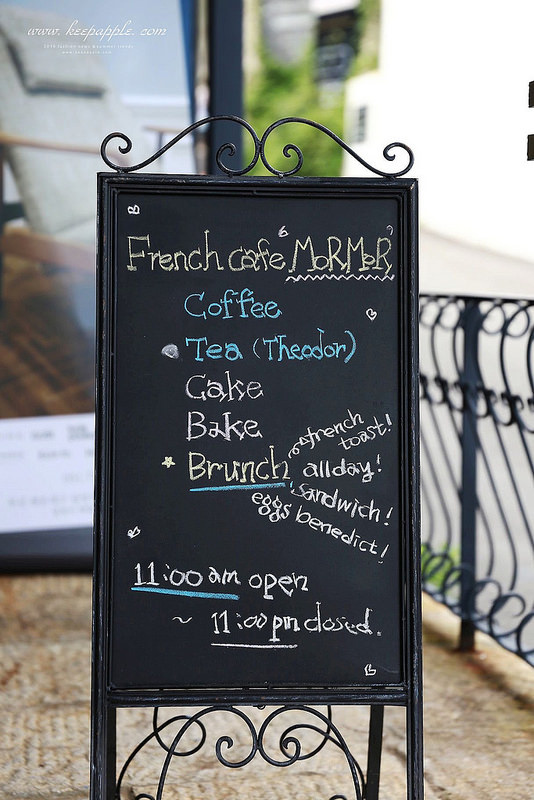 www.keepapple.com
French cafe 'MoRMoR'
Coffee
Tea (Theodor)
Cake
Bake
french
toast!
Brunch allday!
sandwich!
eggs benedict!
11:00 am open
~ 11:00 pm closed.